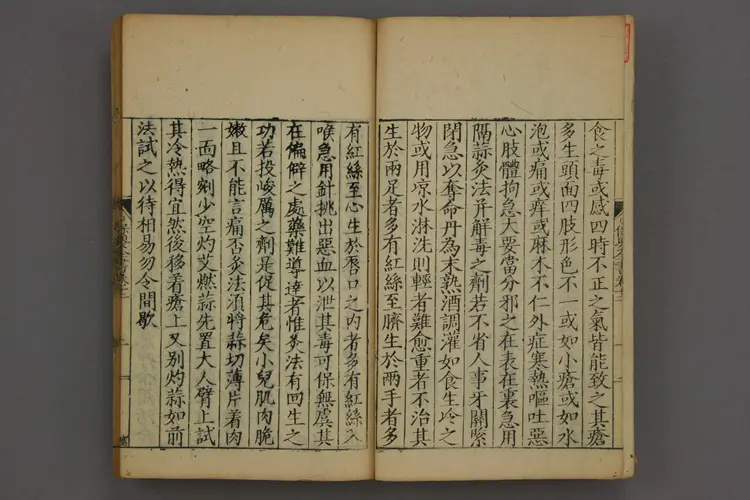 食之毒或感四時不正之氣皆能致之其瘡
多生頭面四肢形色不一或如小瘡或如水
泡或痛或痒或麻木不仁外症寒熱嘔吐惡
心肢體拘急大要當分邪之在表在裏急用
隔蒜灸法并解毒之劑若不省人事牙關緊
閉急以奪命丹為末熟酒調灌如食生冷之
物或用凉水淋洗則輕者難愈重者不治其
生於兩足者多有紅絲至臍生於兩手者多
有紅絲至心生於唇口之内者多有紅絲入
喉急用針挑出惡血以泄其毒可保無虞其
在偏僻之處藥難導達者惟灸法有回生之
功若投峻厲之劑是促其危矣小兒肌肉脆
嫩且不能言痛否灸法須將蒜切薄片着肉
一面略剜少空灼艾燃蒜先置大人臂上試
其冷熱得宜然後移着瘡上又別灼蒜如前
法試之以待相易勿令間歇